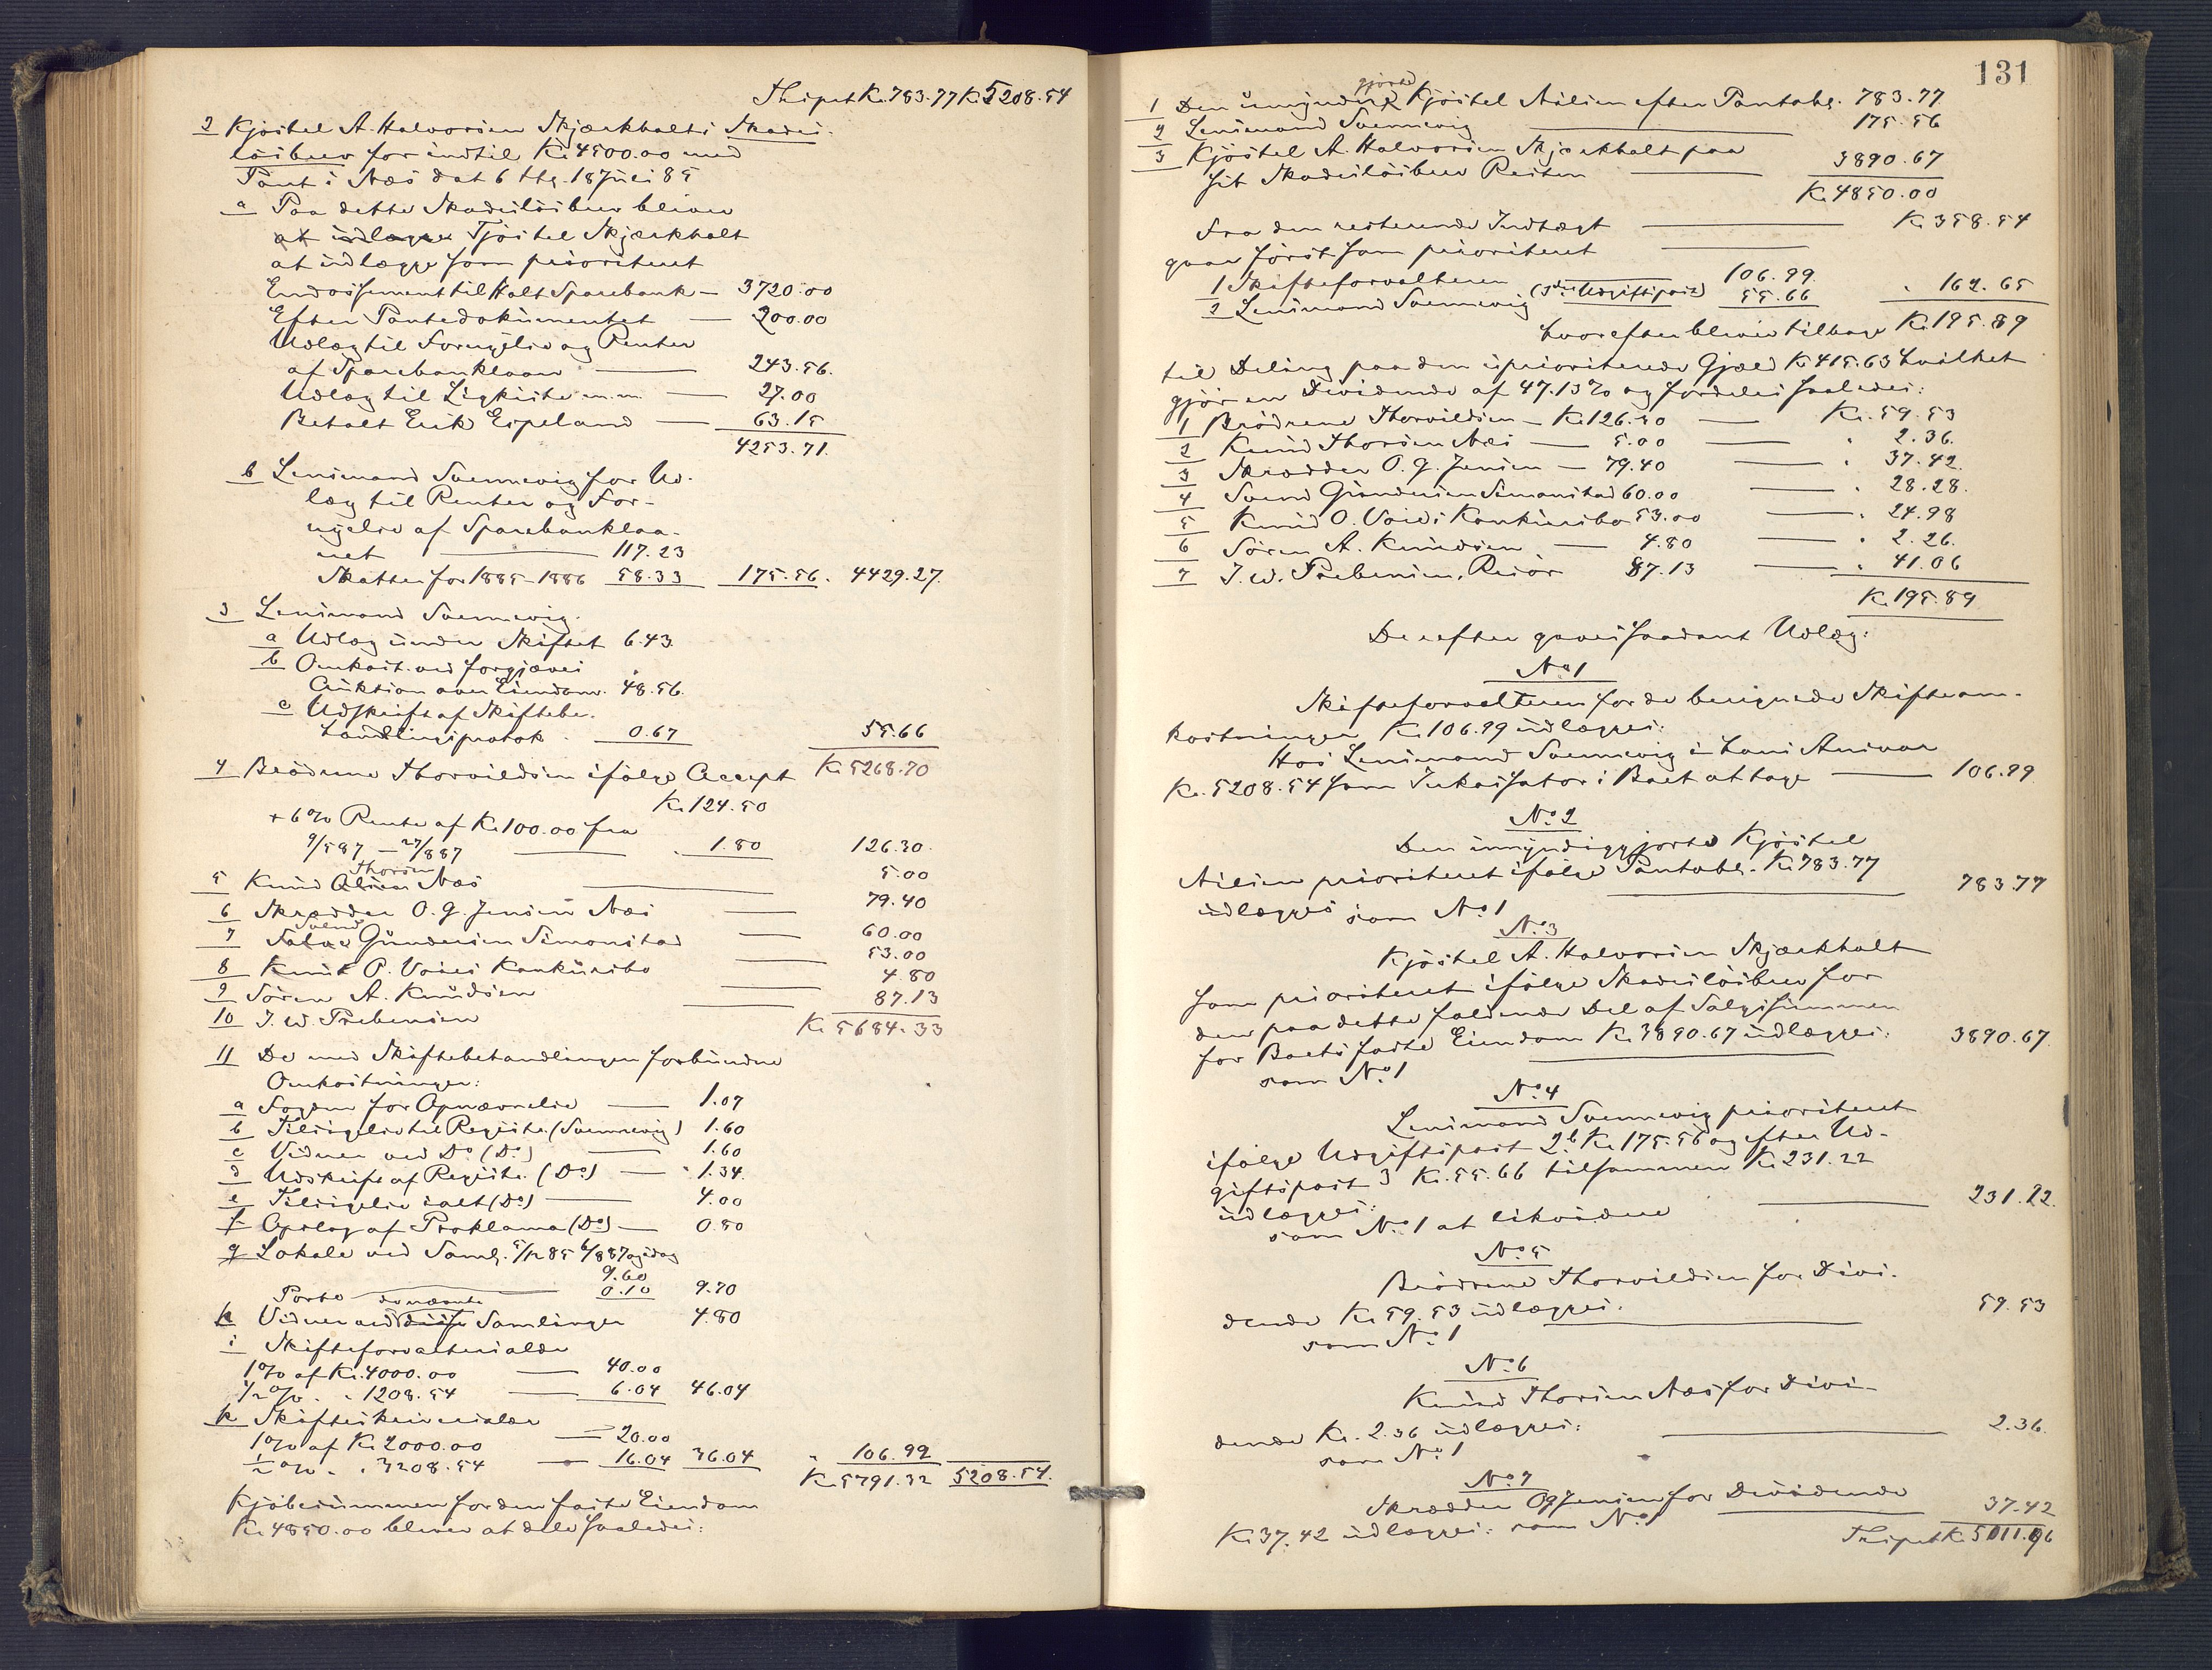 Transport Kr. 783.77 Kr. 5208.54
2 Kjöstel A. Halvorsen Skjærkholts Skades-
lösbrev for indtil Kr. 4500.00 med
Pant i Næs dat 6 thg. 18 Juli 85
a Paa dette Skadeslösbrev bliver
at udlægge Tjöstel Skjærkholt
at udlægge som prioriteret
Endossement til Holt Sparebank — 3720.00
Efter Pantedokumentet — 200.00
Udlæg til Fornyelse og Renter
af Sparebanklaan — 243.56.
Udlæg til Ligkiste m.m. — 27.00
Betalt Erik Espeland — 63.15
4253.71.
b Lensmand Svennevig for Ud-
læg til Renter og For-
nyelse af Sparebanklaa-
net — 117.23
Skatter for 1885-1886 58.33 175.56. 4429.27.
3 Lensmand Svennevig.
a Udlæg under Skiftet 6.43.
b Omkost. ved forgjæves
Auktion over Eiendom. 48.56.
c Udskrift af Skiftebe-
handlingsprotok. 0.67 55.66
Kr. 5268.70
4 Brödrene Thorvildsen ifölge Accept
Kr. 124.50
+ 6% Rente af Kr. 100.00 fra
9/5 87 — 27/8 87 — 1.80 126.30.
5 Knud Olsen Thorsen Næs — 5.00
6 Skrædder O. G. Jensen Næs — 79.40
7 Svend Gundersen Simonstad — 60.00
8 Knut O. Voies Konkursbo — 53.00
9 Sören A. Knudsen — 4.80
10 J. W. Prebensen — 87.13
Kr. 5684.33
11 De med Skiftebehandlingen forbundne
Omkostninger:
a Fogden for Opnævnelse — 1.07
b Tilsigelse til Registr. (Svennevig) 1.60
c Vidner ved Do (Do) — 1.60
d Udskrift af Registr. (Do) — 1.34.
e Tilsigelse ialt (Do) — 4.00
f Opslag af Proklama (Do) — 0.80
g Lokale ved Saml. 5/12 85 6/8 87 og idag
9.60
Porto — 0.10 9.70
h Vidner ved de nævnte disse Samlinger 4.80
i Skifteforvaltersalær
1% af Kr. 4000.00 — 40.00
1/2 % . " 1208.54 — 6.04 46.04
k Skifteskriversalær
1% af Kr. 2000.00 — 20.00
1/2 % . " 3208.54 — 16.04 36.04 " 106.99
Kr. 5791.32 5208.54.
Kjöbesummen for den faste Eiendom
Kr. 4850.00 bliver at dele saaledes:
131
1 Den umyndiggjorte Kjöstel Nilsen efter Pantobl. 783.77
2 Lensmand Svennevig — 175.56
3 Kjöstel A. Halvorsen Skjærkholt paa
sit Skadeslösbrev Resten — 3890.67
Kr. 4850.00
Fra den resterende Indtægt — Kr. 358.54
gaar först som prioriteret
1 Skifteforvalteren 106.99.
2 Lensmand Svennevig (3die Udgiftspost) 55.66 " 162.65
hvorefter bliver tilbage Kr. 195.89
til Deling paa den uprioriterede Gjæld Kr. 415.63 hvilket
gjör en Dividende af 47.13% og fordeles saaledes:
1 Brödrene Thorvildsen — Kr. 126.30 — Kr. 59.53
2 Knud Thorsen Næs — 5.00 — " 2.36.
3 Skrædder O. G. Jensen — 79.40 — " 37.42.
4 Svend Gundersen Simonstad 60.00 — " 28.28.
5 Knud O. Voies Konkursbo 53.00 — " 24.98
6 Sören A. Knudsen — 4.80 — " 2.26.
7 J. W. Prebensen, Risör 87.13 — " 41.06
Kr. 195.89
Derefter gaves saadant Udlæg:
No 1
Skifteforvalteren for de beregnede Skifteom-
kostninger Kr. 106.99 udlægges:
Hos Lensmand Svennevig i hans Ansvar
Kr. 5208.54 som Inkassator i Boet at tage — 106.99
No. 2
Den umyndiggjorte Kjöstel
Nilsen prioriteret ifölge Pantobl. Kr. 783.77
udlægges — 783.77
som No. 1
No. 3
Kjöstel A. Halvorsen Skjærkholt
som prioriteret ifölge Skadeslösbrev for
den paa dette faldende Del af Salgssummen
for Boets faste Eiendom Kr. 3890.67 udlægges: 3890.67.
som No. 1
No. 4
Lensmand Svennevig prioriteret
ifölge Udgiftspost 2b Kr. 175.56 og efter Ud-
giftspost 3 Kr. 55.66 tilsammen Kr. 231.22
udlægges: — 231.22.
som No. 1 at likvidere
No. 5
Brödrene Thorvildsen for Divi-
dende Kr. 59.53 udlægges. 59.53
som No. 1
No. 6
Knud Thorsen Næs for Divi-
dende Kr. 2.36 udlægges: — 2.36.
som No. 1
No. 7
Skrædder O G Jensen for Dividende
Kr. 37.42 udlægges: som No. 1 37.42
Transport Kr. 5111.96